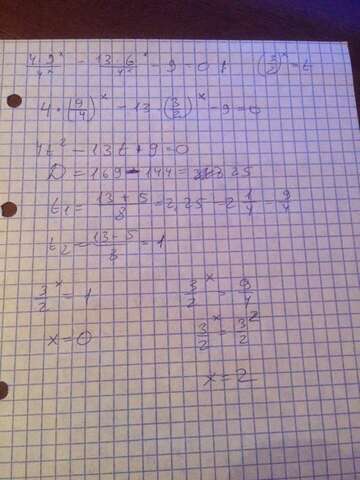 4·9ˣ/4ˣ − 13·6ˣ/4ˣ − 9 = 0 (3/2)ˣ = t
4·(9/4)ˣ − 13·(3/2)ˣ − 9 = 0
4t² − 13t + 9 = 0
D = 169 − 144 = 25
t₁ = (13 + 5)/8 = 2,25 = 2 1/4 = 9/4
t₂ = (13 − 5)/8 = 1
3/2ˣ = 1 3/2ˣ = 9/4
x = 0 3/2ˣ = 3/2²
x = 2